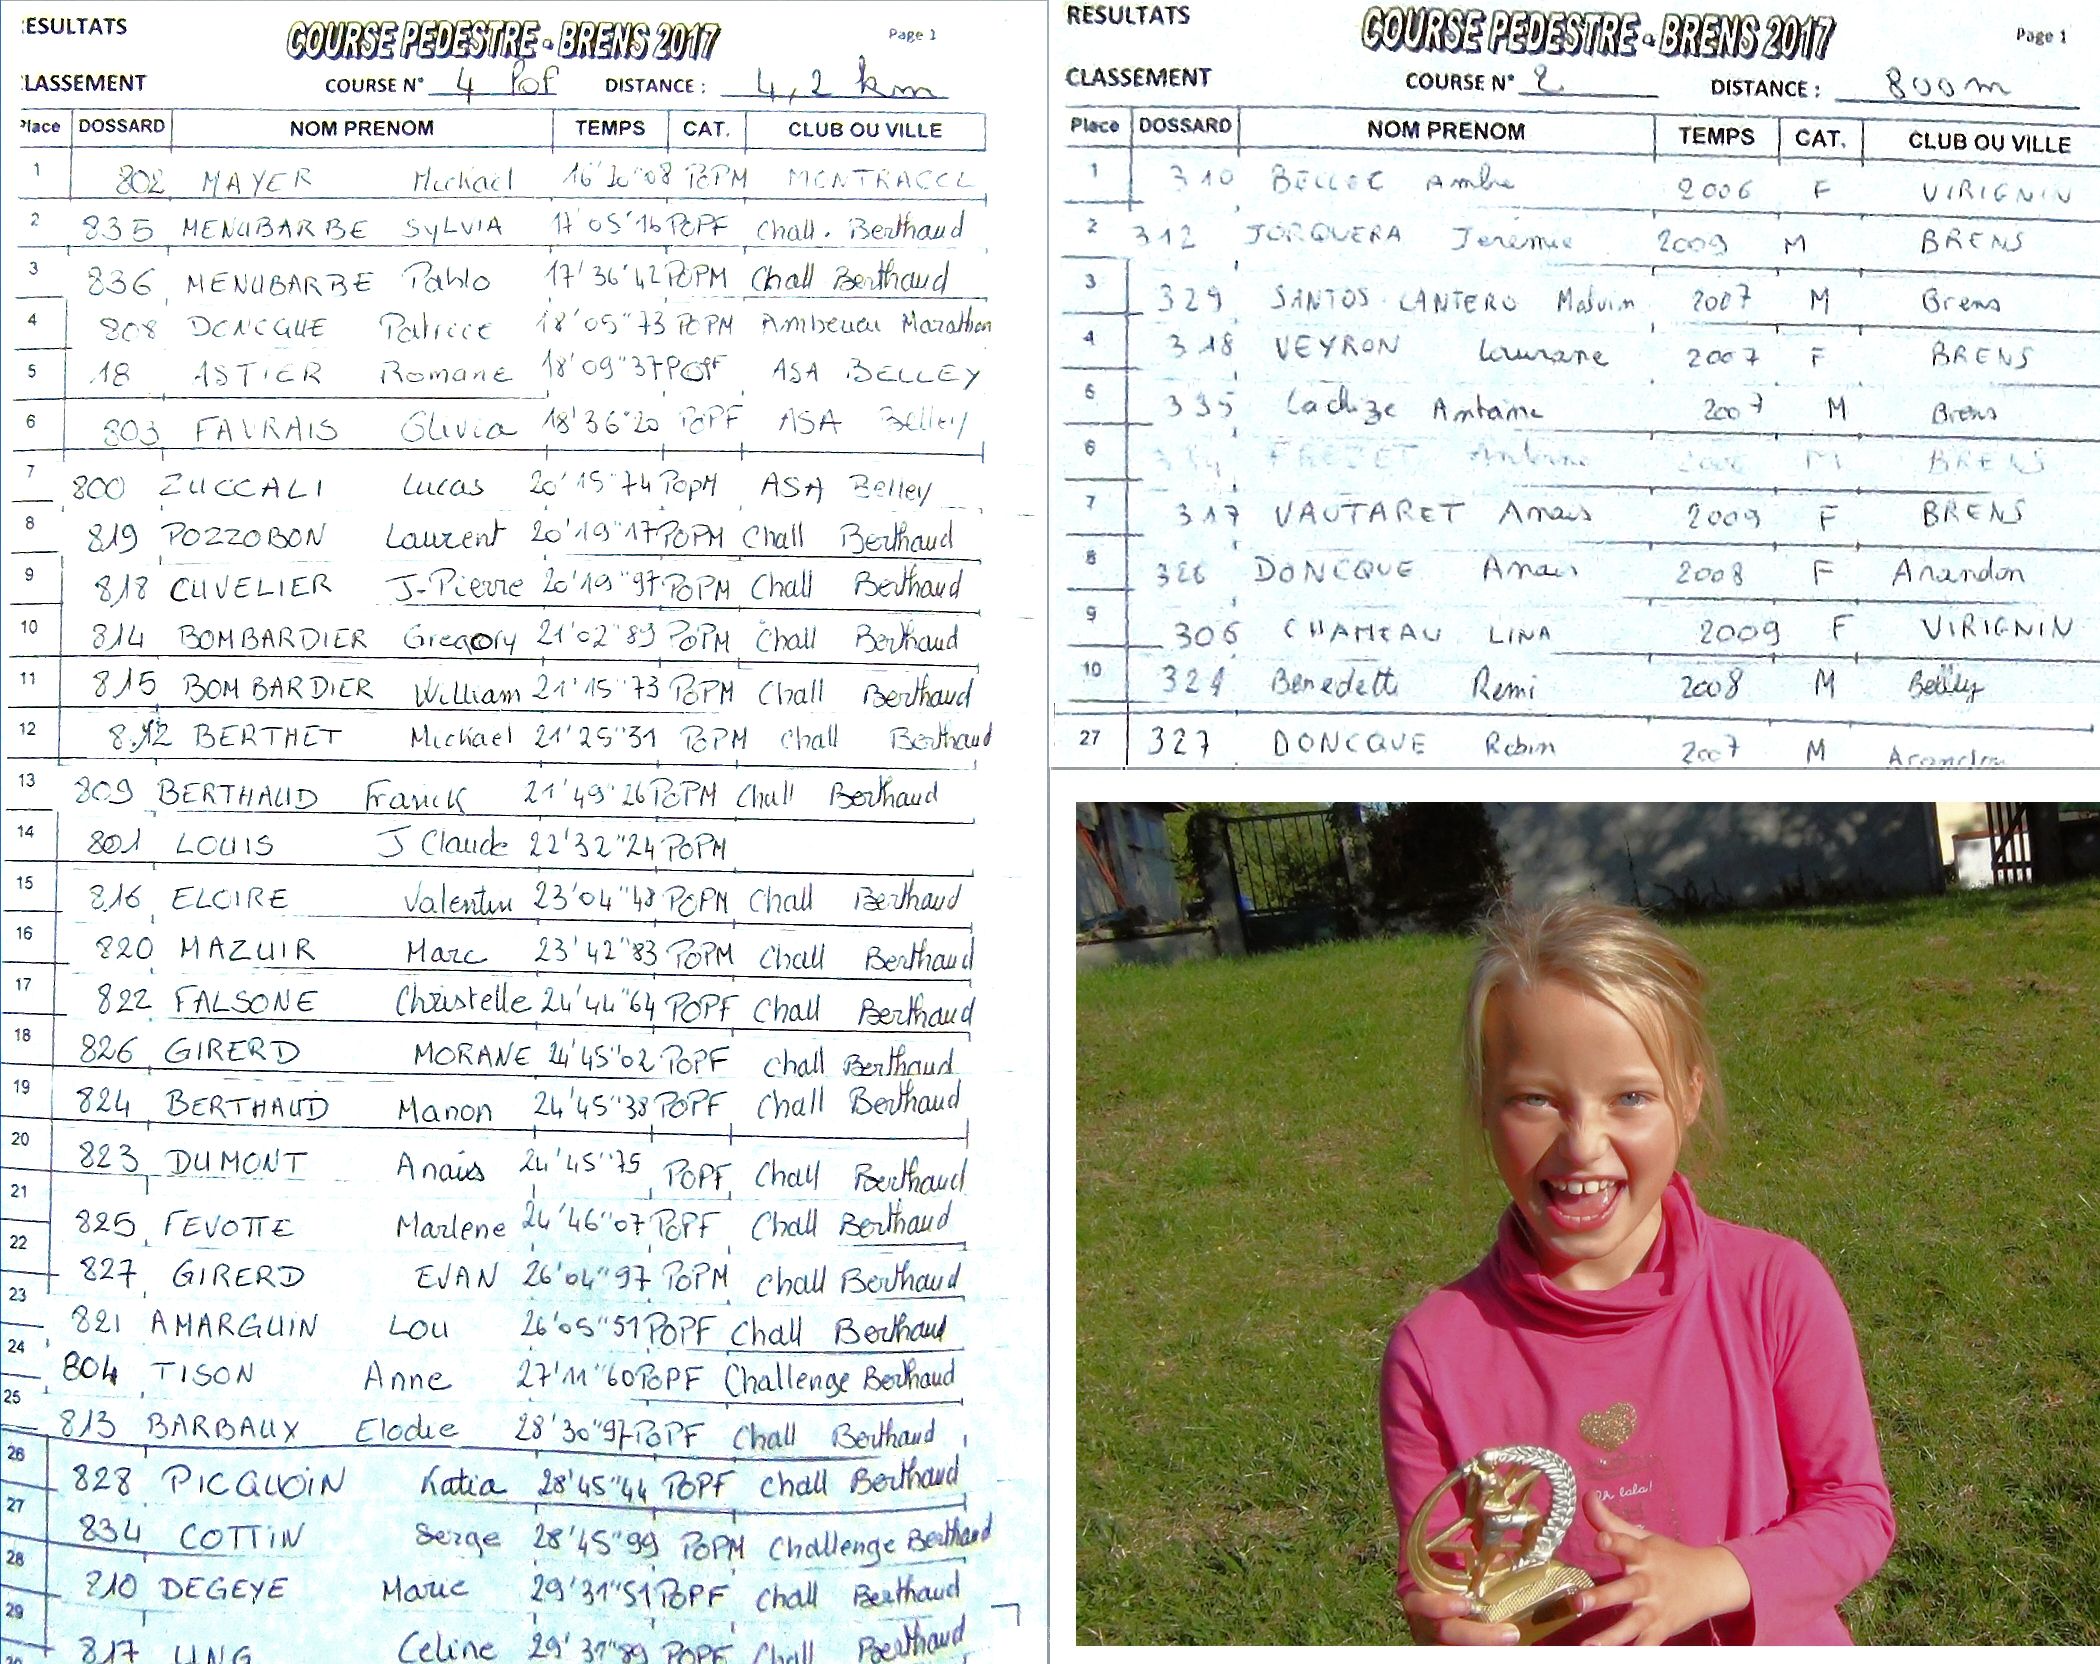 ESULTATS
COURSE PEDESTRE - BRENS 2017
Page 1
LASSEMENT COURSE N° 4 Pof DISTANCE : 4,2 km
Place DOSSARD NOM PRENOM TEMPS CAT. CLUB OU VILLE
1 802 MAYER Mickael 16'20"08 POPM
2 835 MENUBARBE SYLVIA 17'05'16 POPF Chall. Berthaud
3 836 MENUBARBE Pablo 17'36'42 POPM Chall Berthaud
4 808 DONCQUE Patrice 18'05"73 POPM Marathon
5 18 ASTIER Romane 18'09"37 POPF ASA BELLEY
6 803 FAVRAIS Olivia 18'36"20 POPF ASA Belley
7 800 ZUCCALI Lucas 20'15"74 POPM ASA Belley
8 819 POZZOBON Laurent 20'19"17 POPM Chall Berthaud
9 818 CUVELIER J-Pierre 20'19"97 POPM Chall Berthaud
10 814 BOMBARDIER Gregory 21'02"89 POPM Chall Berthaud
11 815 BOMBARDIER William 21'15"73 POPM Chall Berthaud
12 812 BERTHET Mickael 21'25"31 POPM Chall Berthaud
13 809 BERTHAUD Franck 21'49"26 POPM Chall Berthaud
14 801 LOUIS J Claude 22'32"24 POPM
15 816 ELOIRE Valentin 23'04"48 POPM Chall Berthaud
16 820 MAZUIR Marc 23'42"83 POPM Chall Berthaud
17 822 FALSONE Christelle 24'44"64 POPF Chall Berthaud
18 826 GIRERD MORANE 24'45"02 POPF Chall Berthaud
19 824 BERTHAUD Manon 24'45"38 POPF Chall Berthaud
20 823 DUMONT Anaïs 24'45"75 POPF Chall Berthaud
21 825 FEVOTTE Marlene 24'46"07 POPF Chall Berthaud
22 827 GIRERD EVAN 26'04"97 POPM Chall Berthaud
23 821 AMARGUIN LOU 26'05"51 POPF Chall Berthaud
24 804 TISON Anne 27'11"60 POPF Challenge Berthaud
25 813 BARBAUX Elodie 28'30"97 POPF Chall Berthaud
26 828 PICQUOIN Katia 28'45"44 POPF Chall Berthaud
27 834 COTTIN Serge 28'45"99 POPM Challenge Berthaud
28 810 DEGEYE Marie 29'31"51 POPF Chall Berthaud
29 817 UNG Celine 29'31"89 POPF Chall Berthaud
RESULTATS
COURSE PEDESTRE - BRENS 2017
Page 1
CLASSEMENT COURSE N° 2 DISTANCE : 800m
Place DOSSARD NOM PRENOM TEMPS CAT. CLUB OU VILLE
1 310 Ambre 2006 F VIRIGNIN
2 312 JORQUERA Jérémie 2009 M BRENS
3 329 SANTOS CANTERO 2007 M Brens
4 318 VEYRON Laurane 2007 F BRENS
5 335 Antoine 2007 M Brens
6 M BRENS
7 317 VAUTARET Anais 2009 F BRENS
8 326 DONCQUE Anais 2008 F Arandon
9 306 CHAMEAU LINA 2009 F VIRIGNIN
10 321 Benedetti Remi 2008 M Belley
27 327 DONCQUE Robin 2007 M Arandon
Oh lala!